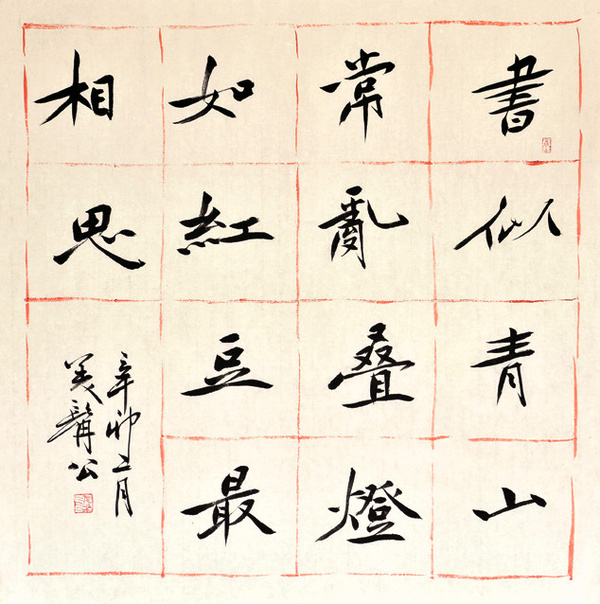 書似青山
常亂叠燈
如紅豆最
相思
辛卯二月
美髯公